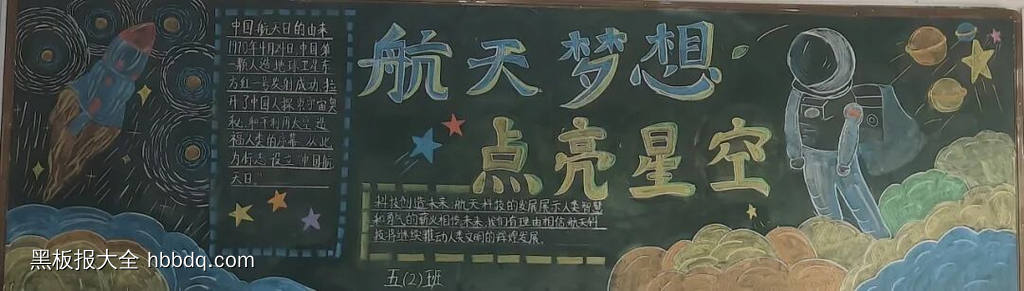 中国航天日的由来
1970年4月24日,中国第
一颗人造地球卫星东
方红一号发射成功,拉
开了中国人探索宇宙奥
秘,和平利用太空,造
福人类的序幕,从此
为标志设立"中国航
天日。"
航天梦想
点亮星空
科技创造未来,航天科技的发展展示人类智慧
和勇气的
未来,我们有理由相信航天科
技将继续推动人类文明的辉煌发展.
五(2)班
黑板报大全 hbbdq.com